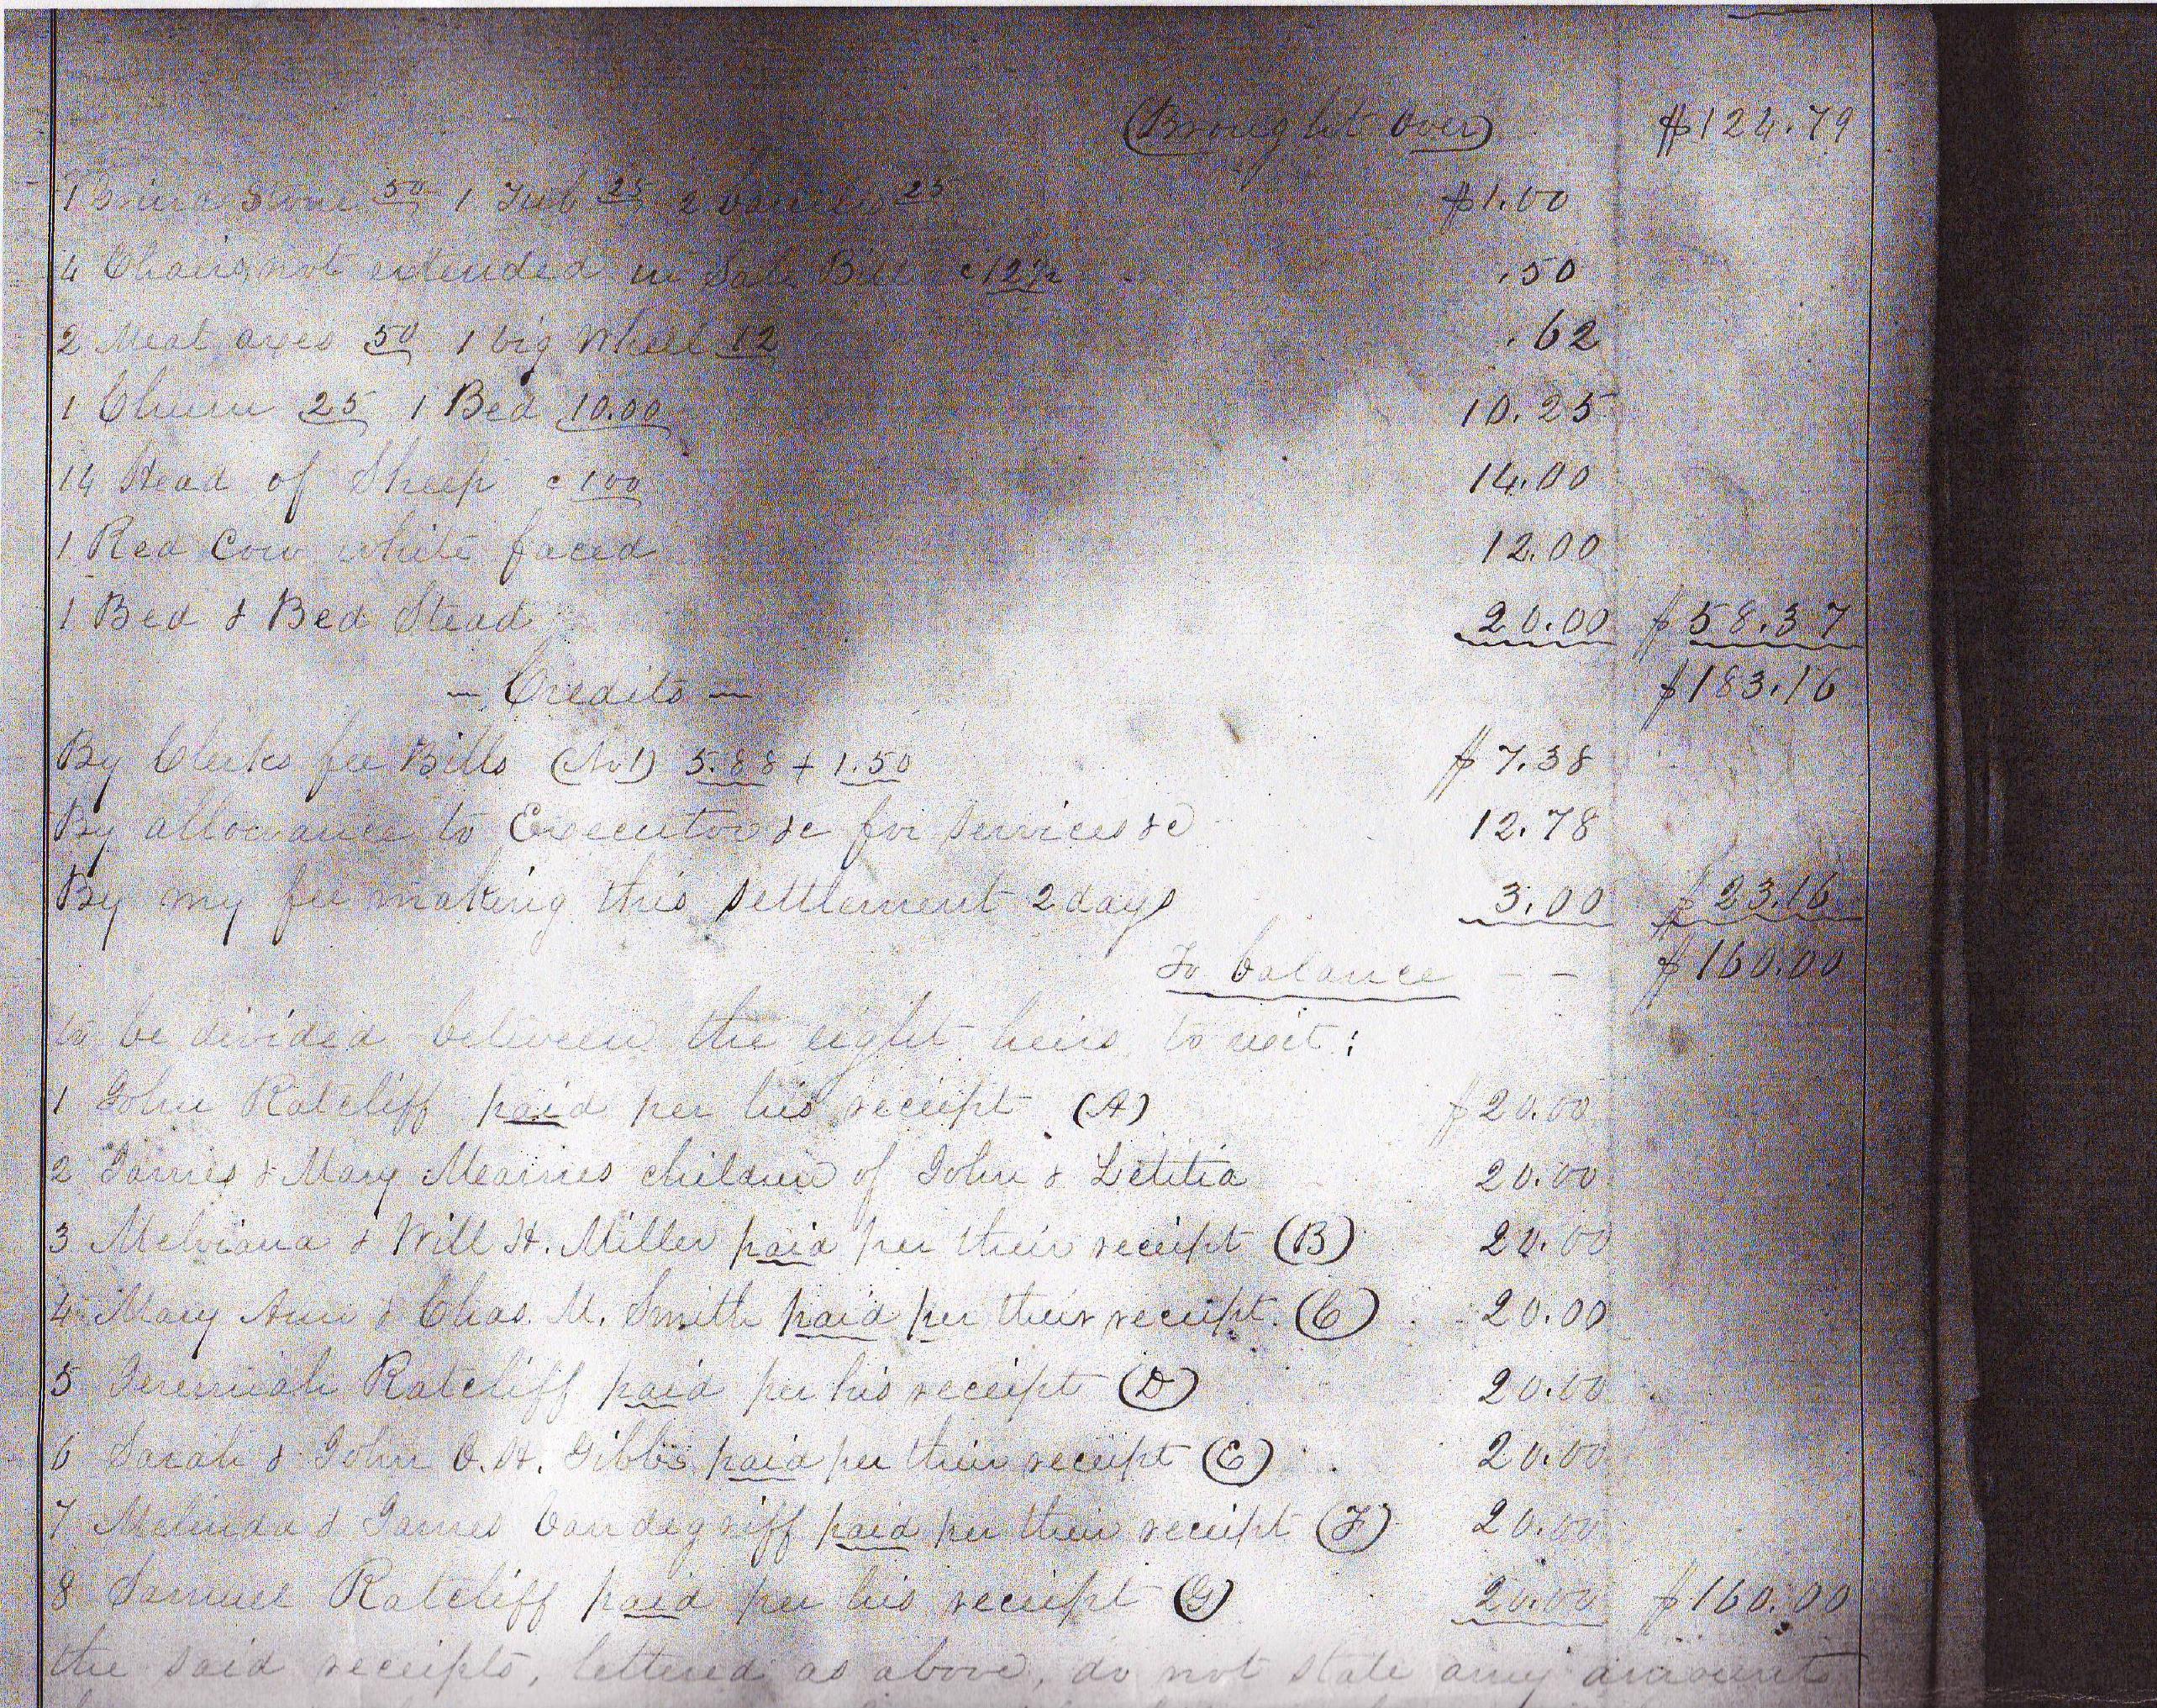 (Brought Over) $124.79
1 Grind Stone 50 1 Tub 25 2 barrels 25 $1.00
4 Chairs not extended in Sale Bill c 12½ .50
2 Meat axes 50 1 big Wheel 12 .62
1 Churn 25 1 Bed 10.00 10.25
14 Head of Sheep c 100 14.00
1 Red Cow white faced 12.00
1 Bed & Bed Stead 20.00 $58.37
- Credits - $183.16
By Clerks fee Bills (No 1) 5.88 + 1.50 $7.38
By allowance to Executor &c for services &c 12.78
By my fee making this settlement 2 days 3.00 $23.16
To balance - - $160.00
to be divided between the eight heirs to wit:
1 John Ratcliff paid per his receipt (A) $20.00
2 James & Mary Mearnes children of John & Letitia 20.00
3 Melviana & Will H. Miller paid per their receipt (B) 20.00
4 Mary Ann & Chas. M. Smith paid per their receipt. (C) 20.00
5 Jeremiah Ratcliff paid per his receipt (D) 20.00
6 Sarah & John O. H. Gibbs paid per their receipt (E) 20.00
7 Melinda & James Vandegriff paid per their receipt (F) 20.00
8 Samuel Ratcliff paid per his receipt (G) 20.00 $160.00
the said receipts, lettered as above, do not state any amounts